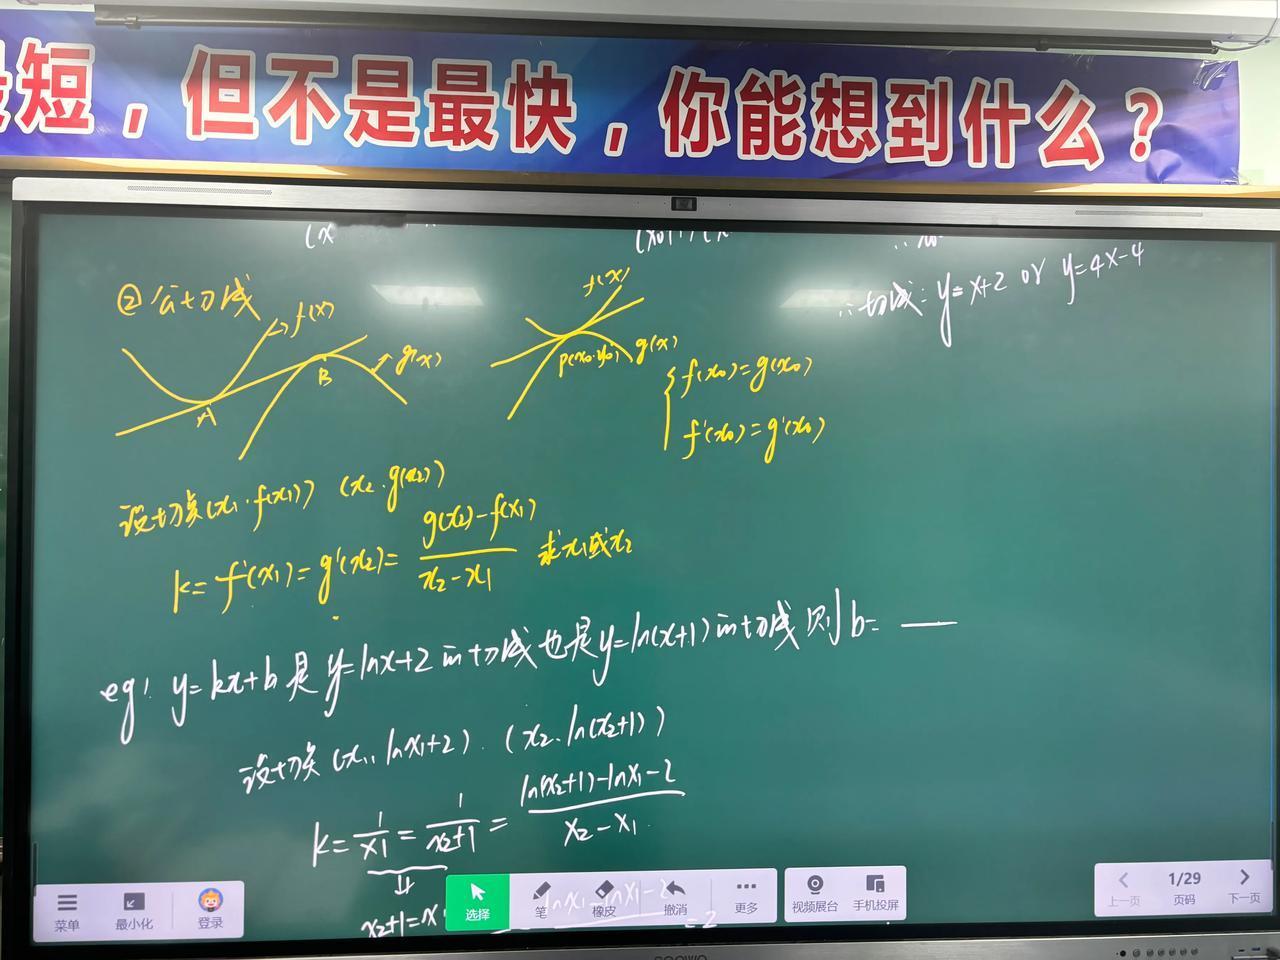 短，但不是最快，你能想到什么？
∴切线：y=x+2 or y=4x-4
②公切线
f(x)
g(x)
A
B
f(x)
g(x)
P(x₀,y₀)
f(x₀)=g(x₀)
f'(x₀)=g'(x₀)
设切点(x₁,f(x₁)) (x₂,g(x₂))
k=f'(x₁)=g'(x₂)=(g(x₂)-f(x₁))/(x₂-x₁) 求x₁或x₂
eg: y=kx+b是y=lnx+2的切线也是y=ln(x+1)的切线则b=___
设切点(x₁,lnx₁+2).(x₂,ln(x₂+1))
k=1/x₁=1/(x₂+1)=(ln(x₂+1)-lnx₁-2)/(x₂-x₁)
⇓
x₂+1=x
lnx₁-lnx₁-2
=2
菜单
最小化
登录
选择
笔
橡皮
撤消
更多
视频展台
手机投屏
上一页
1/29
页码
下一页